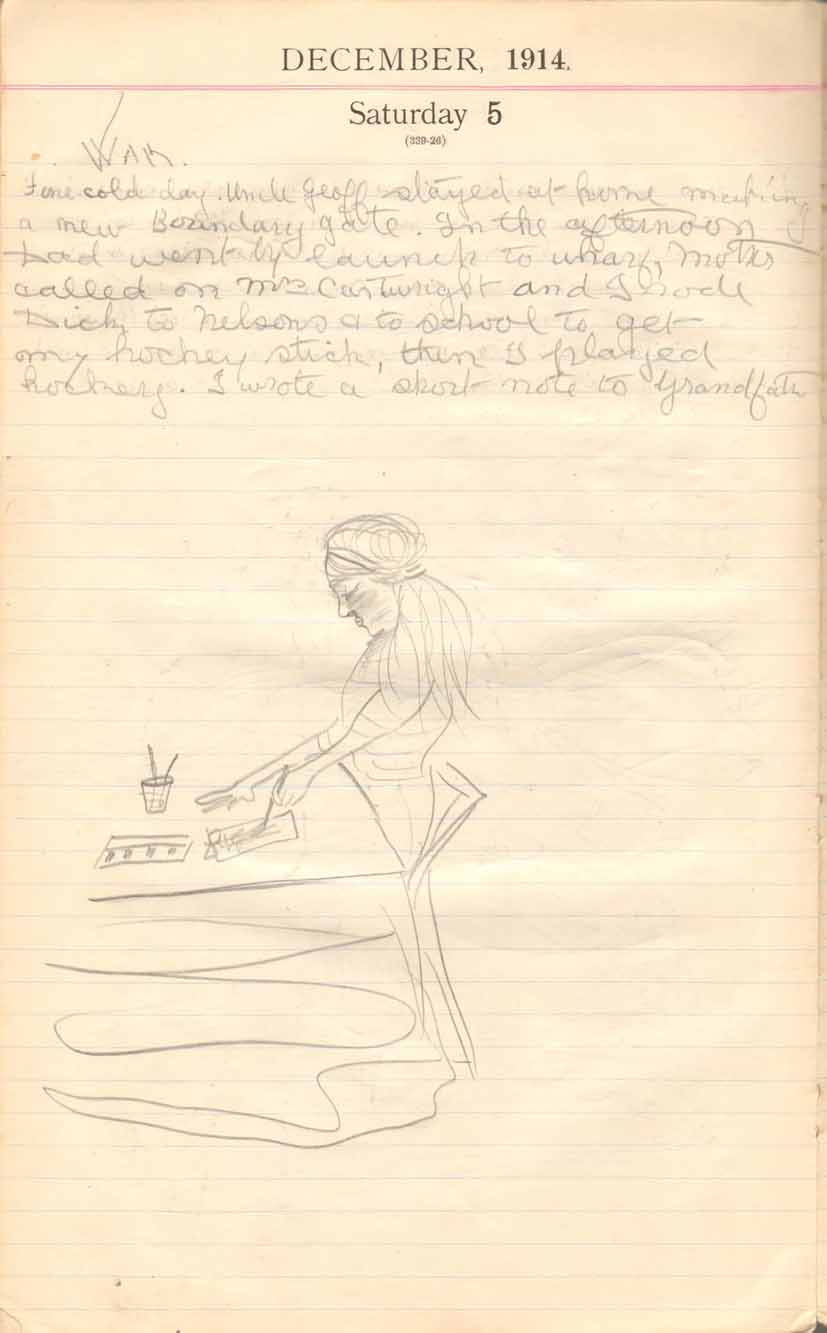 DECEMBER, 1914.
Saturday 5
(339-26)
WAR.
Fine cold day. Uncle Geoff stayed at home making
a new Boundary gate. In the afternoon
Dad went by launch to wharf, Mother
called on Mrs Cartwright and I rode
Dick to Nelsons & to school to get
my hockey stick, then I played
hockey. I wrote a short note to Grandfath